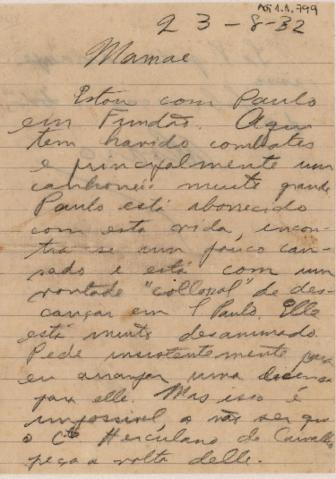 AP 1.1.799
23-8-32
Mamãe
Estou com Paulo
em Fundão. Aqui
tem havido combates
e principalmente um
canhoneio muito grande
Paulo está aborrecido
com esta vida, encon-
tra se um pouco can-
sado e está com um
vontade "collossal" de des-
cançar em S Paulo. Elle
está muito desanimado.
Pede insistentemente para
eu arranjar uma
para elle. Mas isso é
impossivel, a não ser que
o Cte Herculano de Carvalho
peça a volta delle.